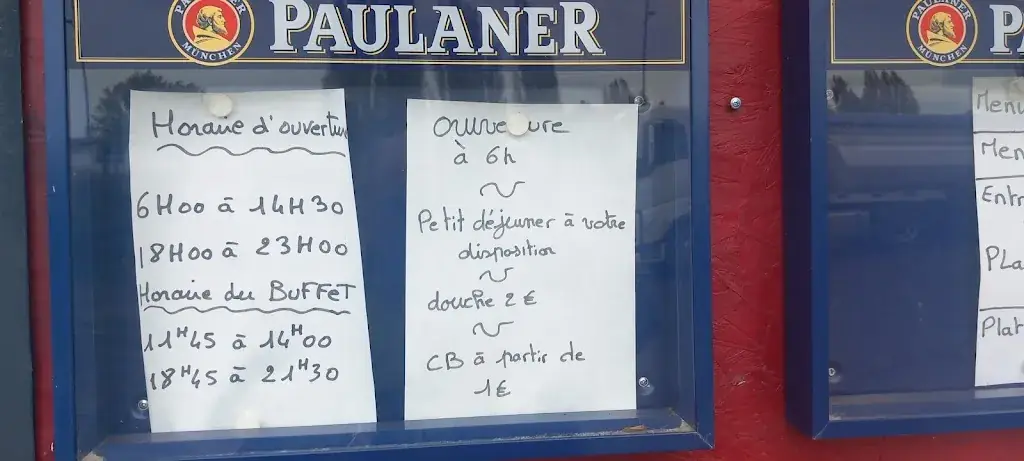 PAULANER
PAULANER
MÜNCHEN
Horaire d'ouverture
6H00 à 14H30
18H00 à 23H00
Horaire du BUFFET
11H45 à 14H00
18H45 à 21H30
ouverture
à 6h
Petit déjeuner à votre
disposition
douche 2 €
CB à partir de
1€
PAULANER
MÜNCHEN
P
Menu
Men
Entr
PLa
Plat